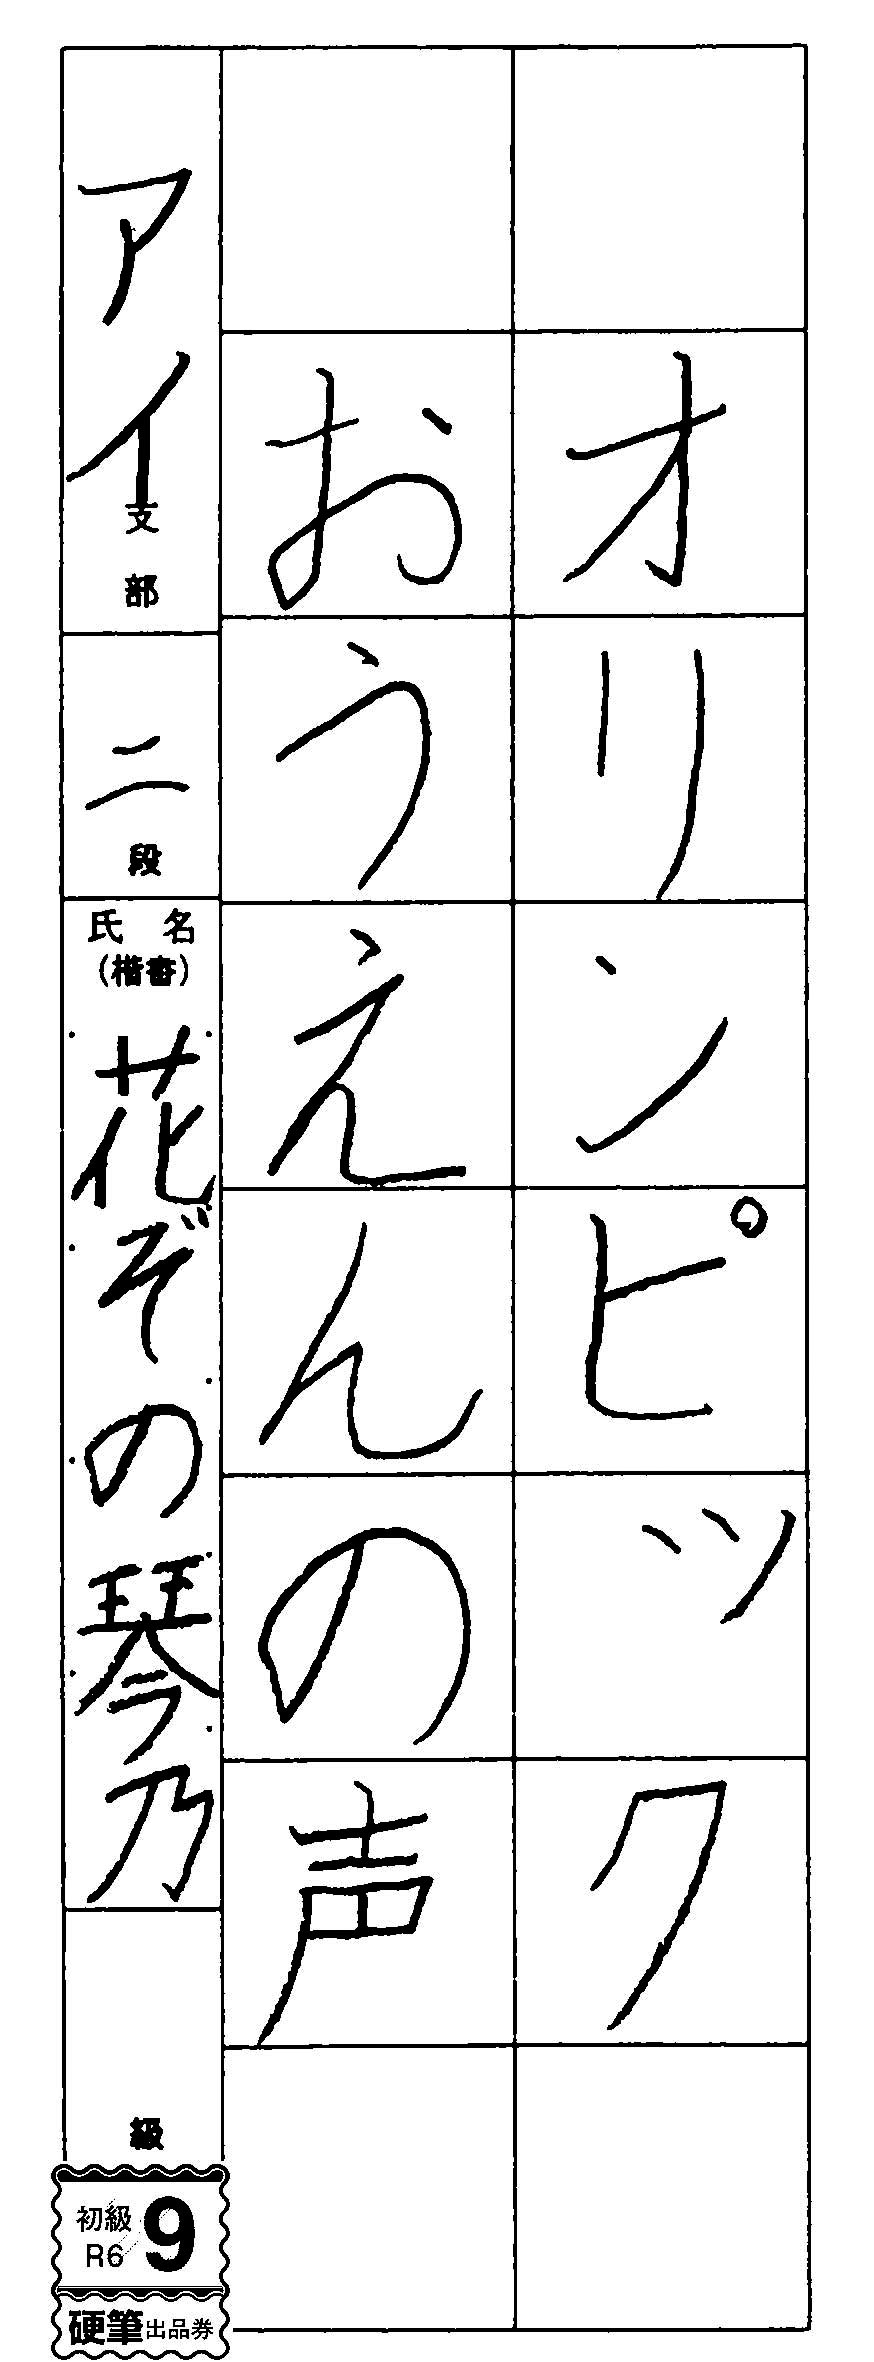 オリンピック
おうえんの声
アイ支部
二段
氏名
(楷書)
花ぞの琴乃
級
初級
R6
9
硬筆出品券